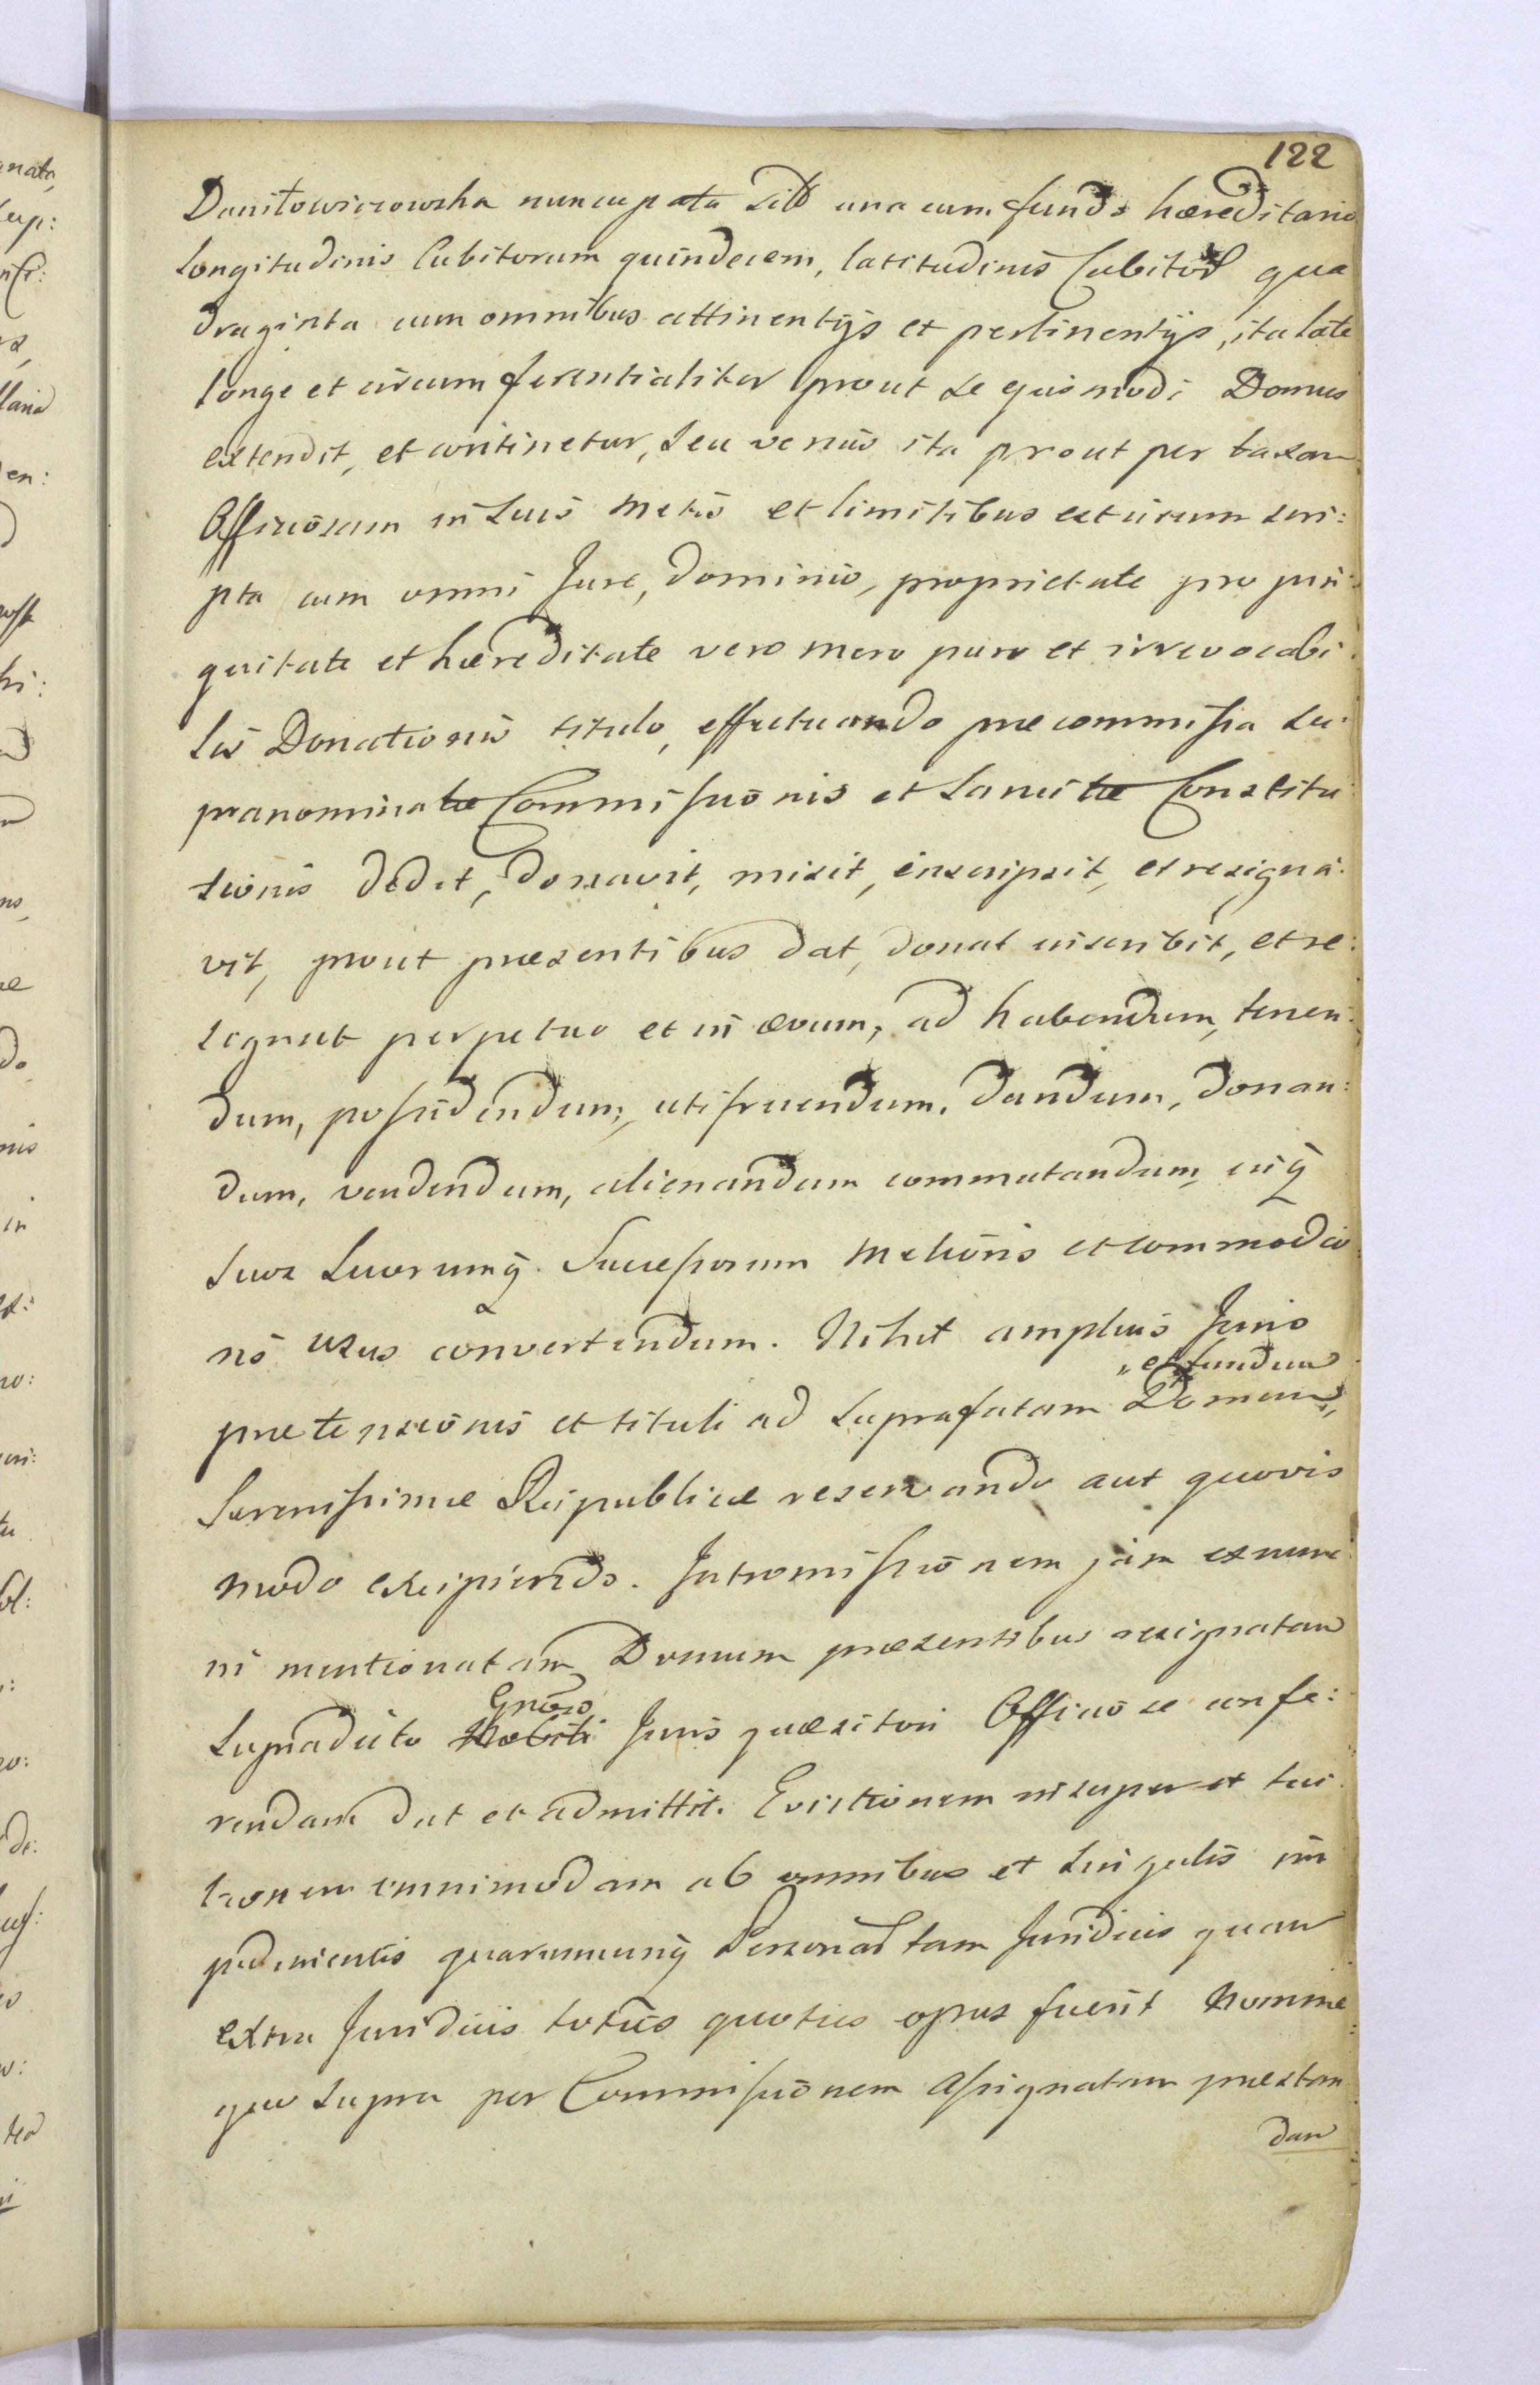 122
Daniłowiczowska nuncupata una cum fundo hæreditario
Longitudinis Cubitorum quindecem, latitudinis Cubitor qua
draginta cum omnibus attinentijs et pertinentijs, ita late
longe et circumferentialiter prout se ejusmodi Domus
extendit, et continetur, seu verius ita prout per taxam
Officiosam in suis metis et limitibus est circum scri:
pta cum omni Jure, dominio, proprietate pro pin
quitate et hæreditate vero mero puro et irrevocabi
lis Donationis titulo, effectuando præcommissa su:
pranominatæ Commissionis et Sancitæ Constitu
tionis dedit, donavit, misit, inscripsit, et resigna:
vit, prout præsentibus dat, donat inscribit, et re:
signat perpetuo et in ævum, ad habendum, tenen:
dum, possidendum, utifruendum, dandum, donan:
dum, vendendum, alienandum commutandum, inq̃
suos suorumq̃. Successorum melioris et commodio
ris usus convertendum. Nihil amplius Juris
et fundum
prætensionis et tituli ad suprafatam Domum,
Serenissimæ Reipublicæ reservando aut quovis
modo excipiendo. Intromissionem jam ex nunc
in mentionatam Domum præsentibus resignatam
Gnoso
supradicto Nobili Juris quæsitori Officiose confe:
rendam dat et admittit. Evictionem insuper et tui
tionem omnimodam ab omnibus et singulis im
pedimentis quarumcunq̃ Personar tam Juridicis quam
extra Juridicis toties quoties opus fuerit nomine
quo supra per Commissionem assignatam præstan
dam